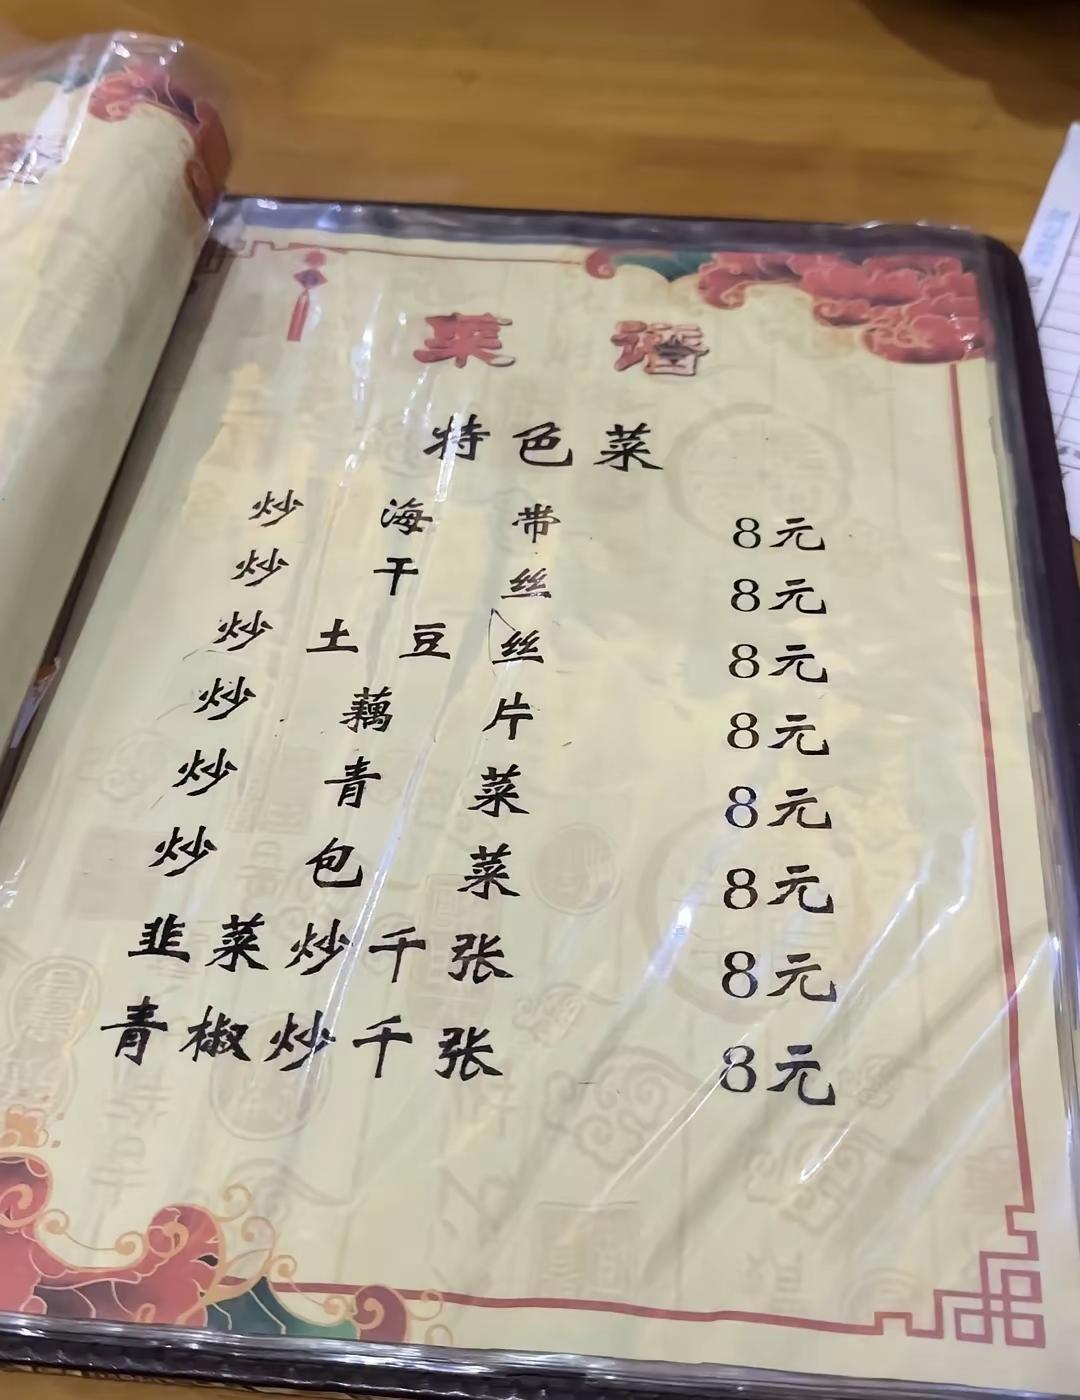 菜谱
特色菜
炒海带 8元
炒干丝 8元
炒土豆丝 8元
炒藕片 8元
炒青菜 8元
炒包菜 8元
韭菜炒千张 8元
青椒炒千张 8元